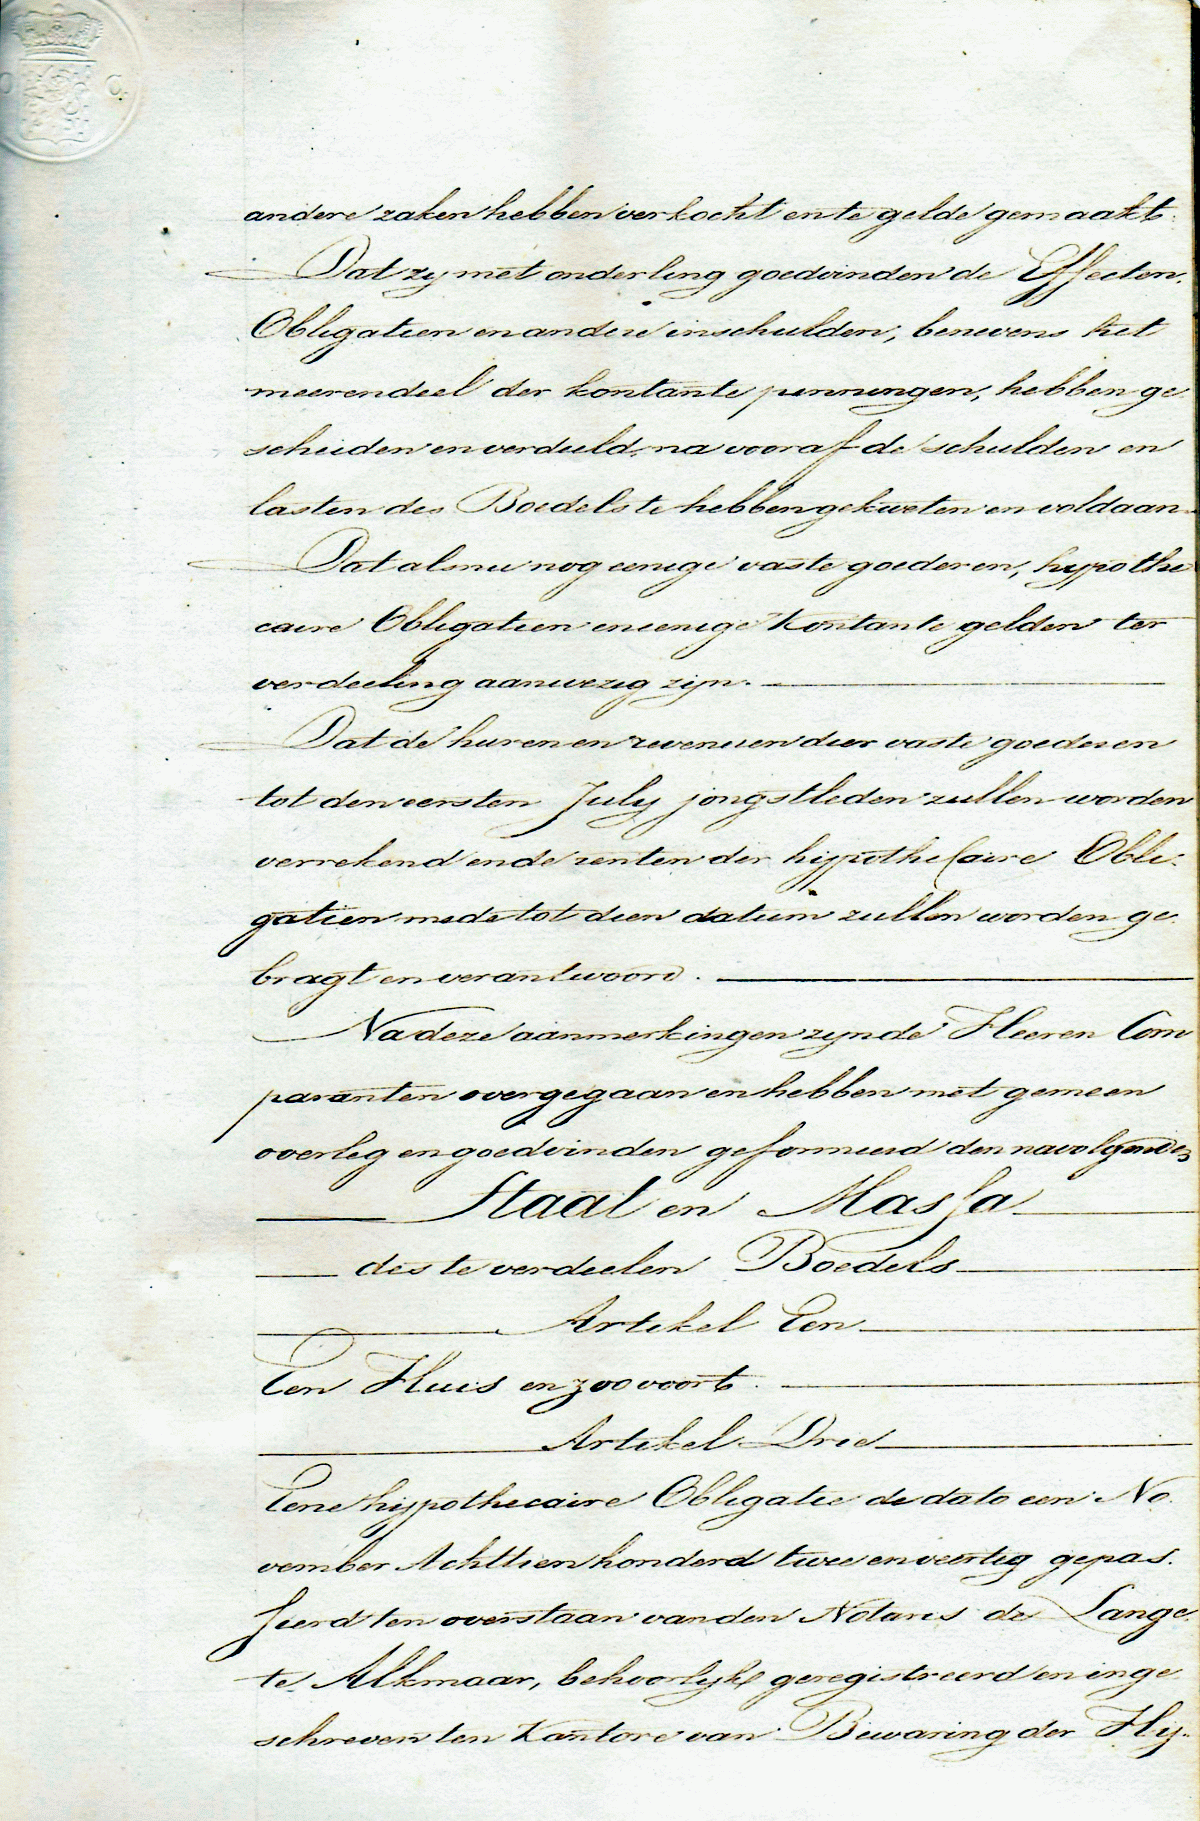 andere zaken hebben verkocht en te gelde gemaakt.
Dat zy met onderling goedvinden de Effecten,
Obligatien en andere inschulden, benevens het
meerendeel der kontante penningen, hebben ge
scheiden en verdeeld, na vooraf de schulden en
lasten des Boedels te hebben gekweten en voldaan.
Dat alsnu nog eenige vaste goederen, hypothe
caire Obligatien en eenige Kontante gelden ter
verdeeling aanwezig zijn.
Dat de huren en revenuen dier vaste goederen
tot den eersten July jongstleden zullen worden
verrekend en de renten der hypothecaire Obli-
gatien mede tot dien datum zullen worden ge
bragt en verantwoord.
Na deze aanmerkingen zyn de Heeren Com
paranten overgegaan en hebben met gemeen
overleg en goedvinden geformeerd den navolgenden
Staat en Massa
des te verdeelen Boedels
Artikel Een
Een Huis en zoo voort.
Artikel Drie
Eene hypothecaire Obligatie de dato een No
vember Achttienhonderd twee en veertig gepas-
seerd ten overstaan van den Notaris de Lange
te Alkmaar, behoorlyk geregistreerd en inge
schreven ten Kantore van Bewaring der Hy-